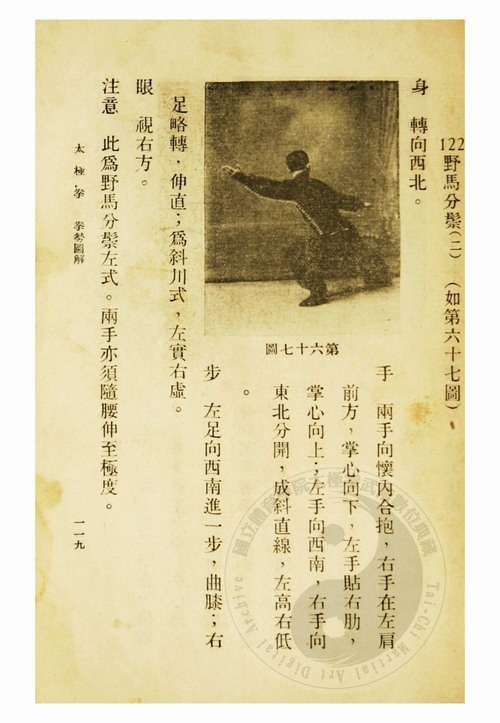 122野馬分鬃(二) (如第六十七圖)
身 轉向西北。
第六十七圖
手 兩手向懷內合抱，右手在左肩
前方，掌心向下，左手貼右肋，
掌心向上；左手向西南，右手向
東北分開，成斜直線，左高右低
。
步 左足向西南進一步，曲膝；右
足略轉，伸直；爲斜川式，左實右虛。
眼 視右方。
注意 此爲野馬分鬃左式。兩手亦須隨腰伸至極度。
太極拳 拳勢圖解
一一九
Tai-Chi Martial Art Digital Archive